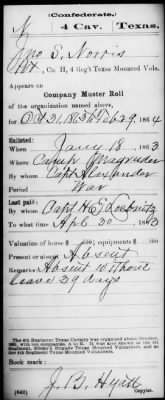 (Confederate.)
N 4 Cav. Texas.
Jno S. Norris
Pvt, Co. H, 4 Reg't Texas Mounted Vols.
Appears on
Company Muster Roll
of the organization named above,
for Oct 31, 1863 to Feb 29, 1864
Enlisted:
When Jany 18, 1863
Where Camp Magruder
By whom Capt Alexander
Period War
Last paid:
By whom Capt H. E.
To what time Apl 30, 1863
Valuation of horse $ 100; equipments $ 100
Present or absent Absent
Remarks Absent without
leave 39 days
The 4th Regiment Texas Cavalry was organized about October,
1861, with ten companies, A to K. It was also known as the 1st
Regiment, Sibley's Brigade Texas Mounted Volunteers, and as
the 4th Regiment Texas Mounted Volunteers.
Book mark:
J. B. Hyatt
(642) Copyist.